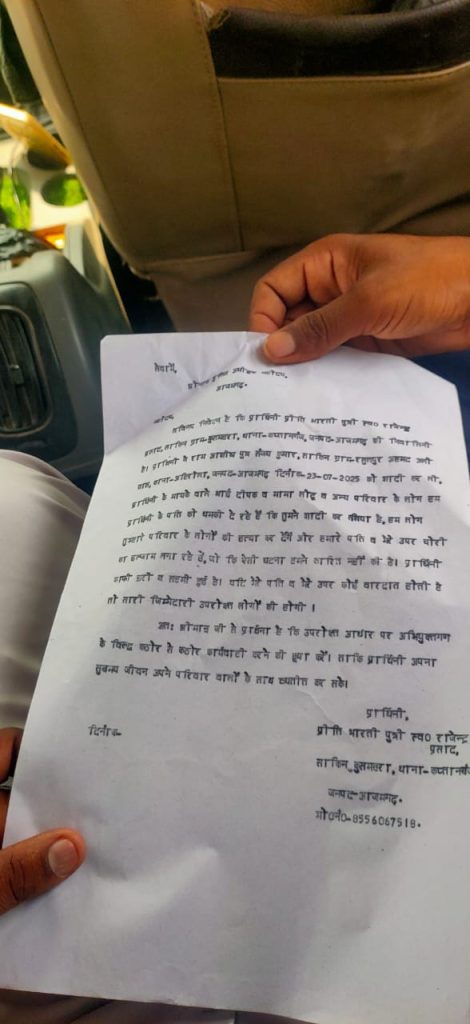 सेवामें,
श्रीमान पुलिस अधीक्षक महोदय,
आजमगढ़।
महोदय,
सविनय निवेदन है कि प्रार्थिनी प्रीति भारती पुत्री स्व० राजेन्द्र
प्रसाद, साकिन ग्राम- थाना-कप्तानगंज, जनपद-आजमगढ़ की निवासिनी
है। प्रार्थिनी ने राम आशीष पुत्र संजय कुमार, साकिन ग्राम-रसूलपुर अहमद अली
थाना-अतरौलिया, जनपद-आजमगढ़ दिनांक-23-07-2025 को शादी कर ली,
प्रार्थिनी के मायके वाले भाई दीपक व मामा व अन्य परिवार के लोग हम
प्रार्थिनी के पति को धमकी दे रहे हैं कि तुमने शादी कर लिया है, हम लोग
तुम्हारे परिवार के लोगों की हत्या कर देंगे और हमारे पति व मेरे उपर चोरी
का इल्जाम लगा रहे हैं, जो कि ऐसी घटना हमने कारित नहीं की है। प्रार्थिनी
काफी डरी व सहमी हुई है। यदि मेरे पति व मेरे उपर कोई वारदात होती है
तो सारी जिम्मेदारी उपरोक्त लोगों की होगी ।
अत: श्रीमान जी से प्रार्थना है कि उपरोक्त आधार पर अभियुक्तगण
के विरूद्ध कठोर से कठोर कार्यवाही करने की कृपा करें। ताकि प्रार्थिनी अपना
सुखमय जीवन अपने परिवार वालों के साथ व्यतीत कर सके।
प्रार्थिनी,
दिनांक-
प्रीति भारती पुत्री स्व० राजेन्द्र
प्रसाद,
साकिन थाना-
जनपद-आजमगढ़.
मो०नं०-8556067518.